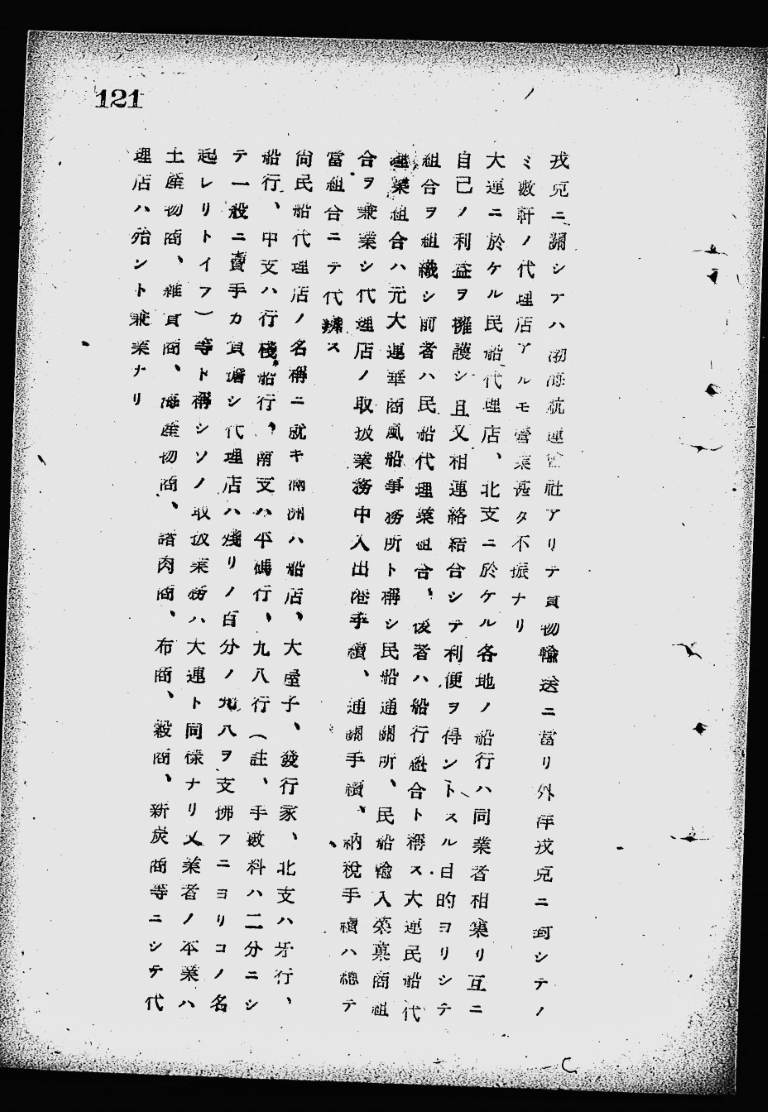 121
戎克ニ關シテハ渤海航運會社アリテ貨物輸送ニ當リ外洋戎克ニ對シテノ
ミ數軒ノ代理店アルモ營業甚タ不振ナリ
大連ニ於ケル民船代理店、北支ニ於ケル各地ノ船行ハ同業者相集リ互ニ
自己ノ利益ヲ擁護シ且又相連絡結合シテ利便ヲ得ントスル目的ヨリシテ
組合ヲ組織シ前者ハ民船代理業組合、後者ハ船行組合ト稱ス大連民船代
理業組合ハ元大連華商風船事務所ト稱シ民船通關所、民船輸入薬菓商組
合ヲ兼業シ代理店ノ取扱業務中入出港手續、通關手續、納稅手續ハ總テ
當組合ニテ代辨ス
尙民船代理店ノ名稱ニ就キ滿洲ハ船店、大屋子、發行家、北支ハ牙行、
船行、中支ハ行棧船行、南支ハ平碼行、九八行(註、手數料ハ二分ニシ
テ一般ニ賣手カ負擔シ代理店ハ殘リノ百分ノ九八ヲ支拂フニヨリコノ名
起レリトイフ)等ト稱シソノ取扱業務ハ大連ト同樣ナリ又業者ノ本業ハ
土產物商、雜貨商、海產物商、諸肉商、布商、穀商、新炭商等ニシテ代
理店ハ殆ント兼業ナリ
C